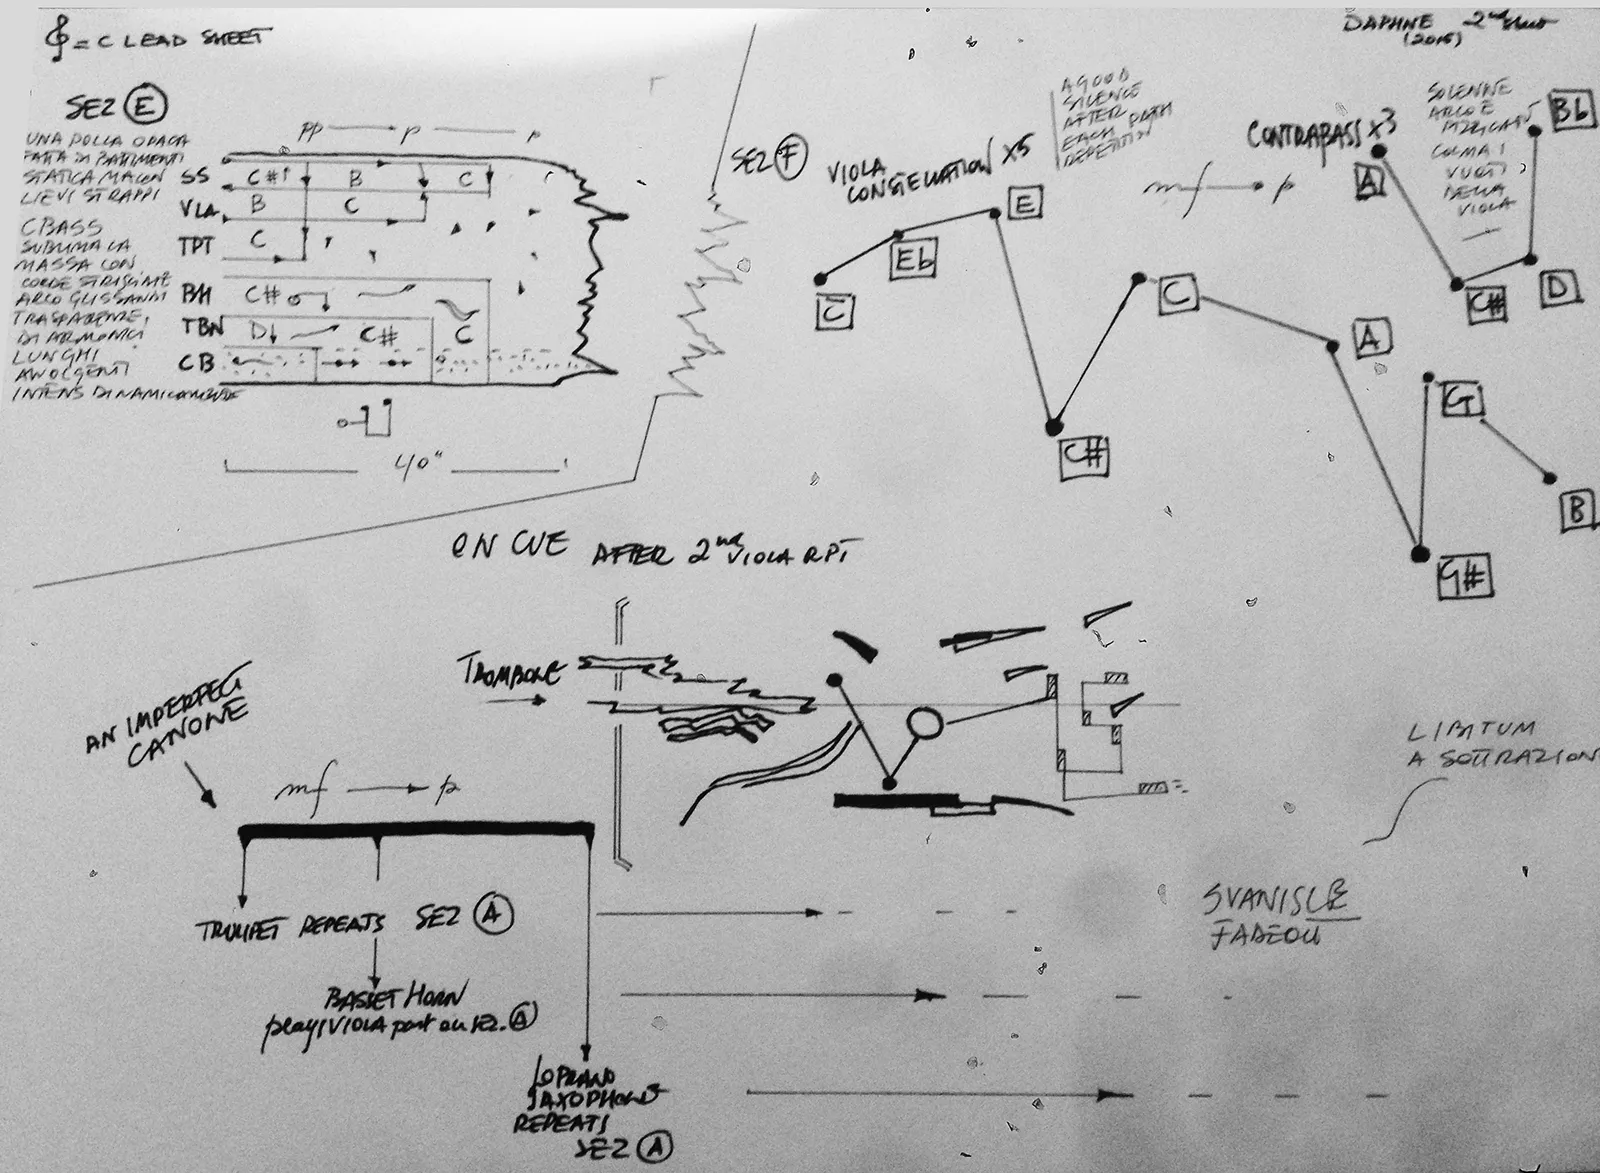 = C LEAD SHEET
DAPHNE 2nd
(2015)
SEZ E
UNA BOLLA OPACA
FATTA DI BATTIMENTI
STATICA MA CON
LIEVI STRAPPI
CBASS
SUBLIMA LA
MASSA CON
CORDE STRISCIATE
ARCO GLISSANDI
TRASPARENZE,
DI ARMONICI
LUNGHI
AVVOLGENTI
INTENS DINAMICAMENTE
pp p p
SS C# B C
VLA B C
TPT C
BH C#
TBN D C# C
CB
40"
SEZ F
VIOLA
CONSTELLATION X5
A GOOD
SILENCE
AFTER
EACH PATH
REPETITION
mf p
CONTRABASS X3
SOLENNE
ARCO E
PIZZICATO
COLMA I
VUOTI
DELLA
VIOLA
C
Eb
E
C#
C
A
G#
G
B
A
C#
D
Bb
ON CUE AFTER 2nd VIOLA RPT
TROMBONE
AN IMPERFECT
CANONE
mf p
LIBITUM
A SOTTRAZION
TRUMPET REPEATS SEZ A
BASSET HORN
plays VIOLA part on SEZ. A
SOPRANO
SAXOPHONE
REPEATS
SEZ A
SVANISCE
FADEOUT